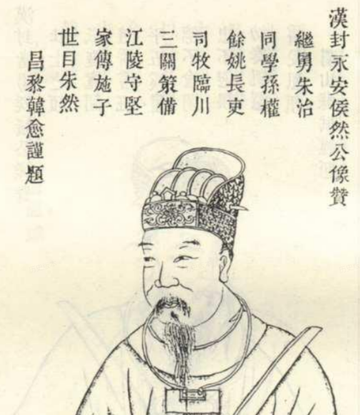 漢封永安侯然公像贊
繼舅朱治
同學孫權
餘姚長吏
司牧臨川
三關策備
江陵守堅
家傳施子
世目朱然
昌黎韓愈謹題